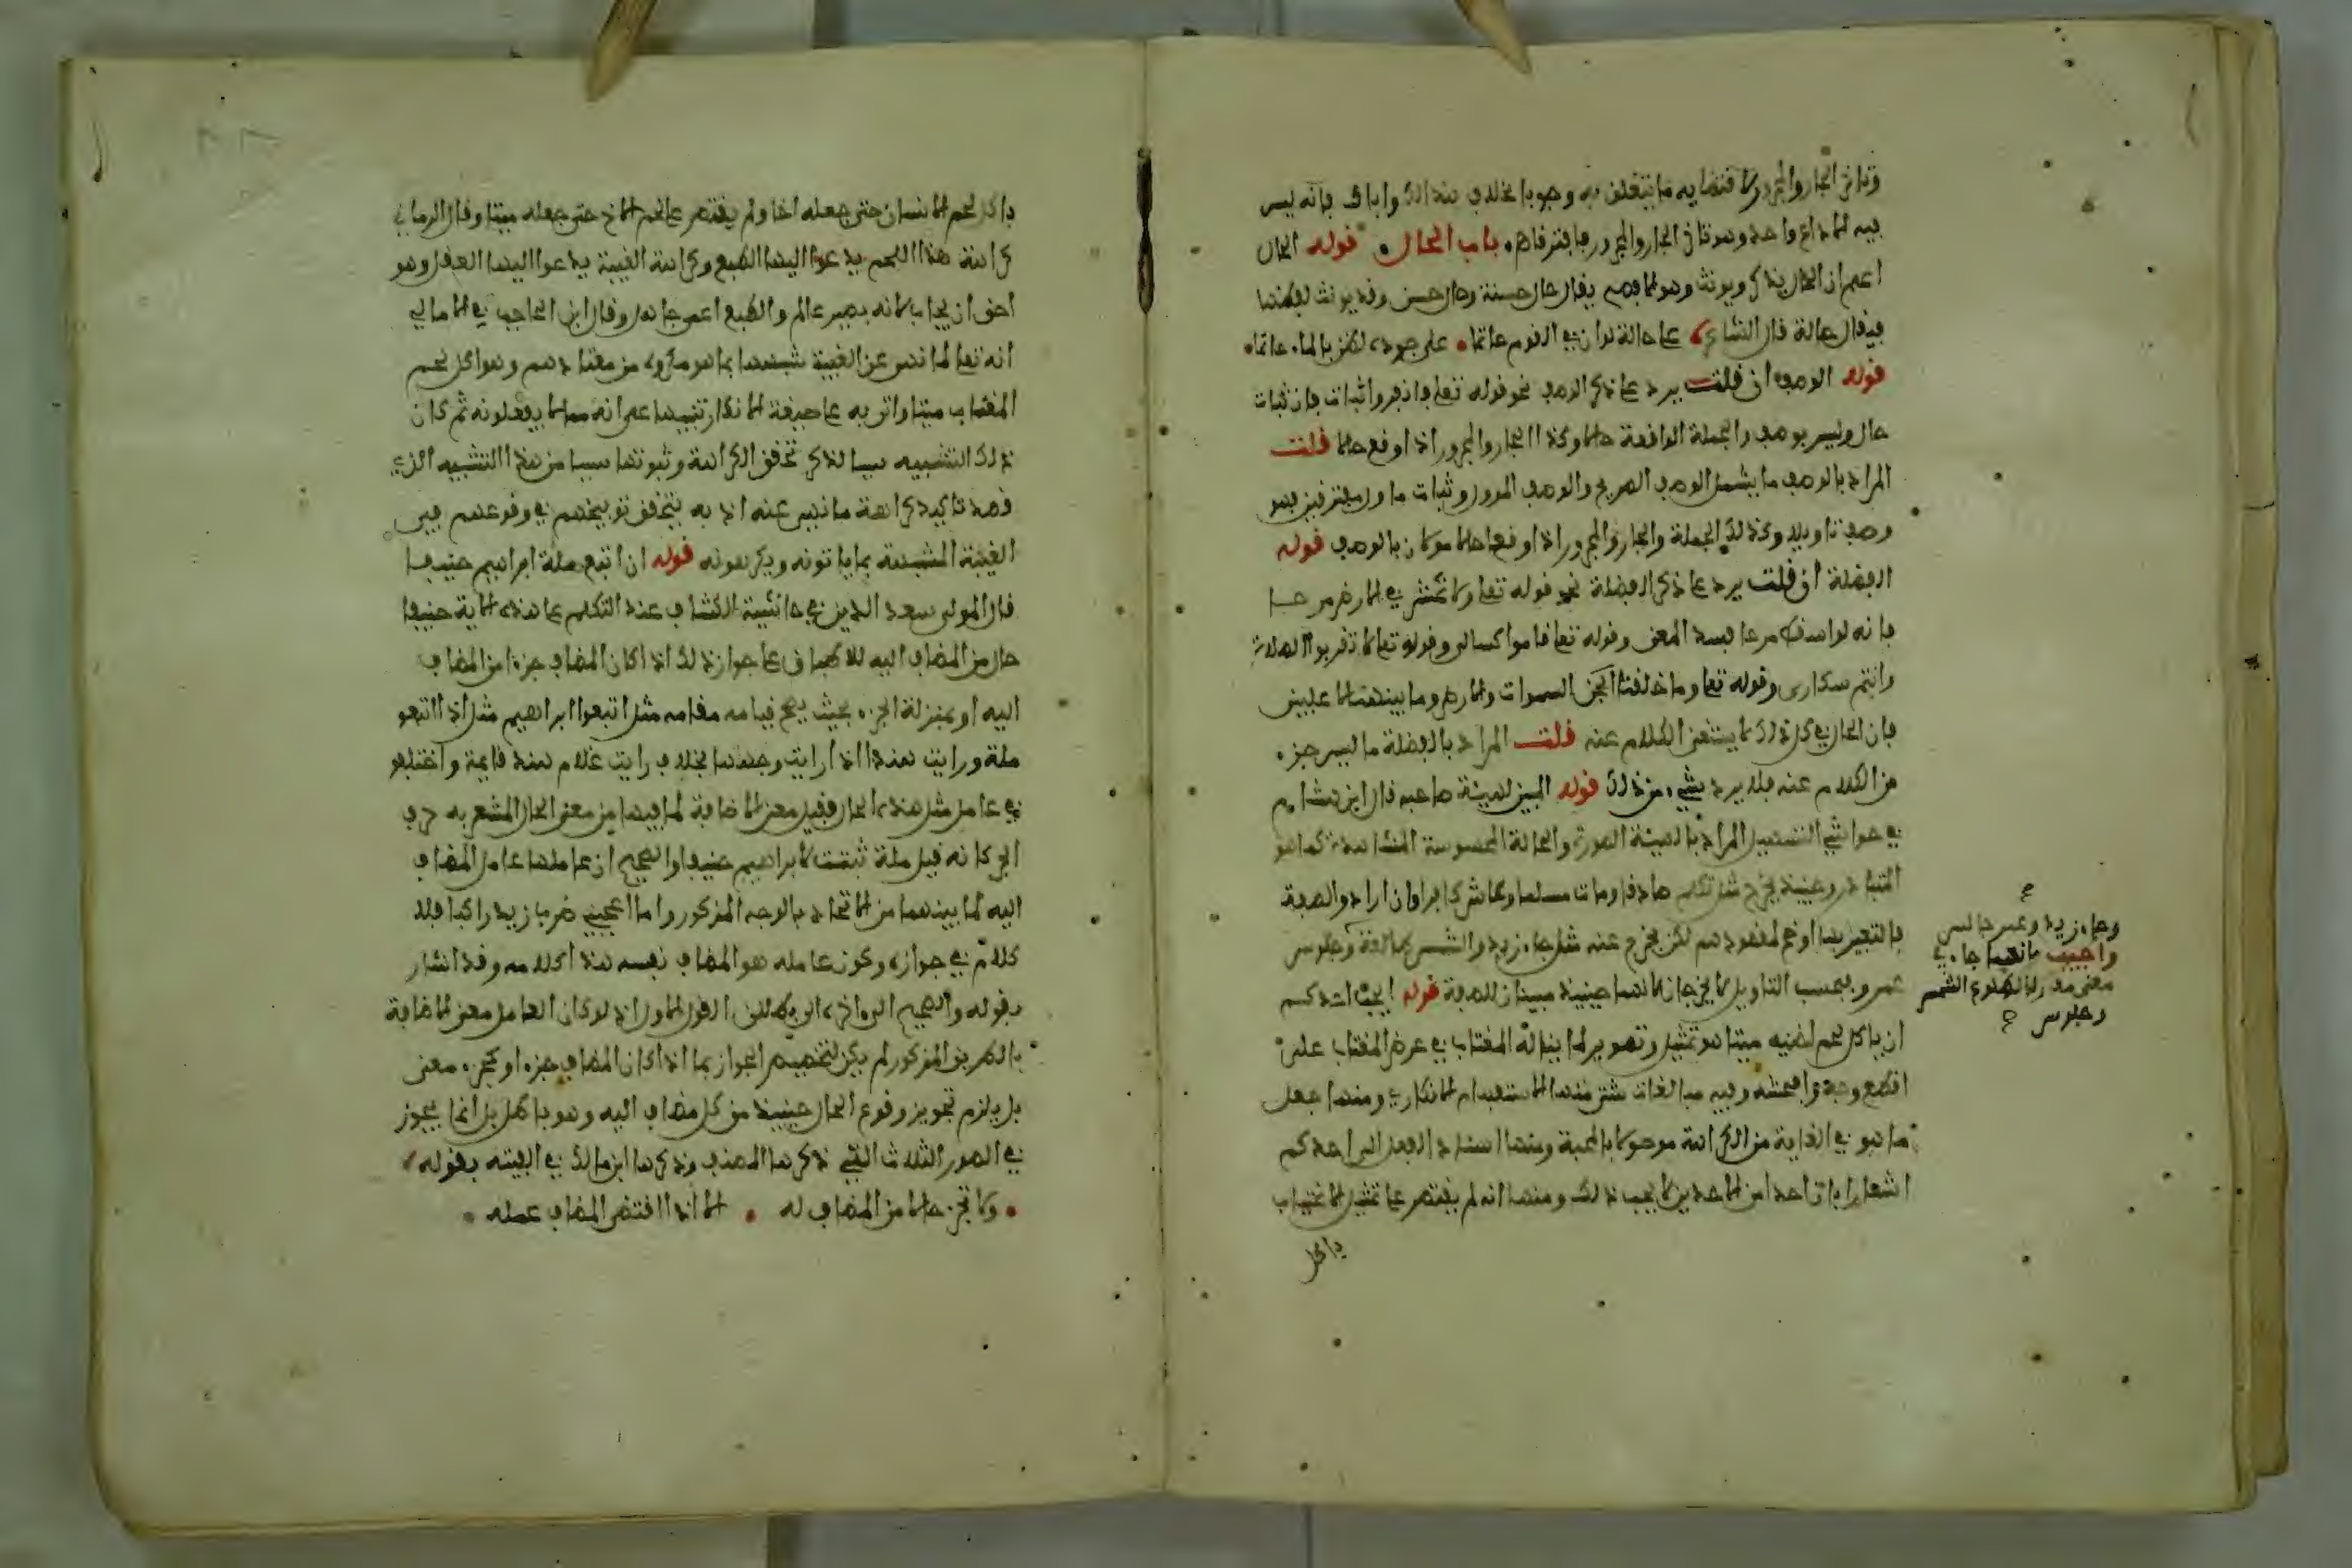 وتارة الجار والمجرور لاقتضايه ما يتعلق به وجوبا بخلاف هذاك واياك فانه ليس
فيه الا داع واحد وهو تارة الجار والمجرور فافترقا هـ باب الحال قوله الحال
اعم ان الحال يذكر ويونث وهو الافصح يقال حال حسنة وحال حسن وقد يونث لفظها
فيقال حالة قال الشاعر على حالة لو ان في القوم حاتما على جوده لضن بالماء حاتم
قوله الوصف ان قلت يرد على ذكر الوصف نحو قوله تعلى فانفروا ثبات فان ثبات
حال وليس بوصف والجملة الواقعة حالا وكذا الجار والمجرور اذا وقع حالا قلت
المراد بالوصف ما يشمل الوصف الصريح والوصف المؤول وثبات ماول بمفترقين فهو
وصف تاويلا وكذلك الجملة والجار والمجرور اذا وقعا حالا مولان بالوصف قوله
الفضلة ان قلت يرد على ذكر الفضلة نحو قوله تعلى ولا تمش في الارض مرحا
فانه لو اسقط مرحا فسد المعنى وقوله تعلى قاموا كسالى وقوله تعلى لا تقربوا الصلاة
وانتم سكارى وقوله تعلى وما خلقنا السموات والارض وما بينهما لاعبين
فان الحال في كل ذلك لا يستغنى الكلام عنه قلت المراد بالفضلة ما ليس جزء
من الكلام عنه فلا يرد شيء من ذلك قوله المبين لهيئة صاحبه قال ابن هشام
في حواشي التسهيل المراد بالهيئة الصورة والحالة المحسوسة المشاهدة كما هو
المتبادر وحينئذ يخرج مثل تكلم صادقا ومات مسلما وعاش كافرا وان ارادوا الصفة
فالتعبير بها اوضح لمقصودهم لكن يخرج عنه مثل جاء زيد والشمس طالعة وجلوس
عمرو وبحسب التاويل لا يخرجان لانهما حينئذ مبينان للصفة قوله ايحب احدكم
ان ياكل لحم اخيه ميتا هو تمثيل وتصوير لما يناله المغتاب من عرض المغتاب على
افظع وجه وافحشه وفيه مبالغات شتى منها الاستفهام الانكاري ومنها جعل
ما هو في الغاية من الكراهة موصولا بالمحبة ومنها اسناد الفعل الى احدكم
اشعارا بان احدا من الاحدين لا يحب ذلك ومنها انه لم يقتصر على تمثيل الاغتياب
ياكل
وجاء زيد وعمر جالس
واجيب بانهما جاء في
معنى مقارنا لطلوع الشمس
وجلوس
ياكل لحم الانسان حتى جعله اخا ولم يقتصر على لحم الاخ حتى جعله ميتا وقال الرماني
كراهة هذا اللحم يدعوا اليها الطبع وكراهة الغيبة يدعوا اليها العقل وهو
احق ان يجاب لانه بصير عالم والطبع اعمى جاهل وقال ابن الحاجب في الامالي
انه تعلى لما نهى عن الغيبة شبهها بما هو مكروه من معتادهم وهو اكل لحم
المغتاب ميتا واتى به على صيغة الانكار تنبيها على انه مما لا يفعلونه ثم كان
ذلك التشبيه سببا لذكر تحقق الكراهة وثبوتها سببا من هذا التشبيه الذي
قصد تاكيد كراهة ما نهى عنه اذ به يتحقق توبيخهم في وقوعهم في
الغيبة المشبهة بما ياتونه ويكرهونه قوله ان اتبع ملة ابراهيم حنيفا
قال المولى سعد الدين في حاشية الكشاف عند التكلم على هذه الاية حنيفا
حال من المضاف اليه للاطباق على جواز ذلك اذا كان المضاف جزءا من المضاف
اليه او بمنزلة الجزء بحيث يصح قيامه مقامه مثل اتبعوا ابراهيم مثل اذا اتبعوا
ملة ورايت هندا اذا رايت وجهها بخلاف رايت غلام هند قايمة واختلفوا
في عامل مثل هذه الحال فقيل معنى الاضافة لما فيها من معنى الحال المشعر به حرف
الجر كانه قيل ملة ثبتت لابراهيم حنيفا والصحيح ان عاملها عامل المضاف
اليه لما بينهما من الاتحاد بالوجه المذكور واما اعجبني ضرب زيد راكبا فلا
كلام في جوازه وكون عامله هو المضاف نفسه هذا كلامه وقد اشار
بقوله والصحيح الى واخره الى بطلان القول الاول اذ لو كان العامل معنى الاضافة
بالطريق المذكور لم يكن لتخصيص الجواز بما اذا كان المضاف جزء او كجزء معنى
بل يلزم تجويز وقوع الحال حينئذ من كل مضاف اليه وهو باطل بل انما يجوز
في الصور الثلاث التي ذكرها المصنف وذكرها ابن مالك في الفيته بقوله
ولا تجز حالا من المضاف له الا اذا اقتضى المضاف عمله